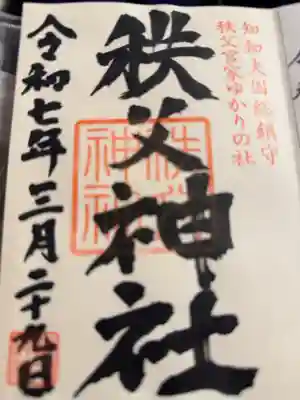 知知夫国総鎮守
秩父宮家ゆかりの社
秩父神社
令和七年三月二十九日